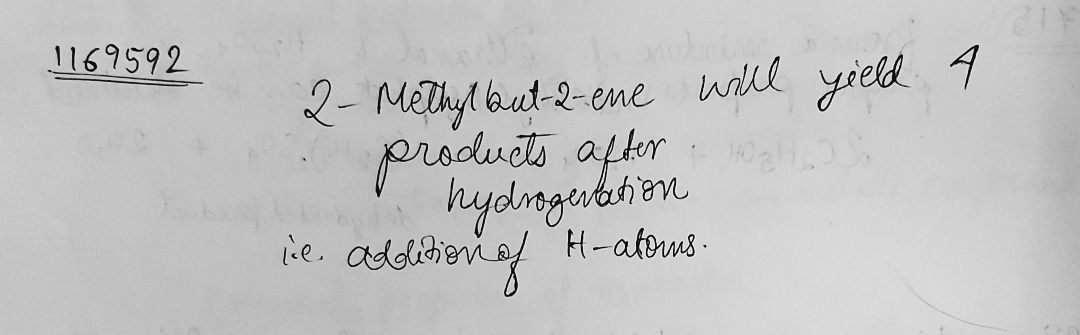 1169592
2-Methylbut-2-ene will yield 4
products after
hydrogenation
i.e. addition of H-atoms.